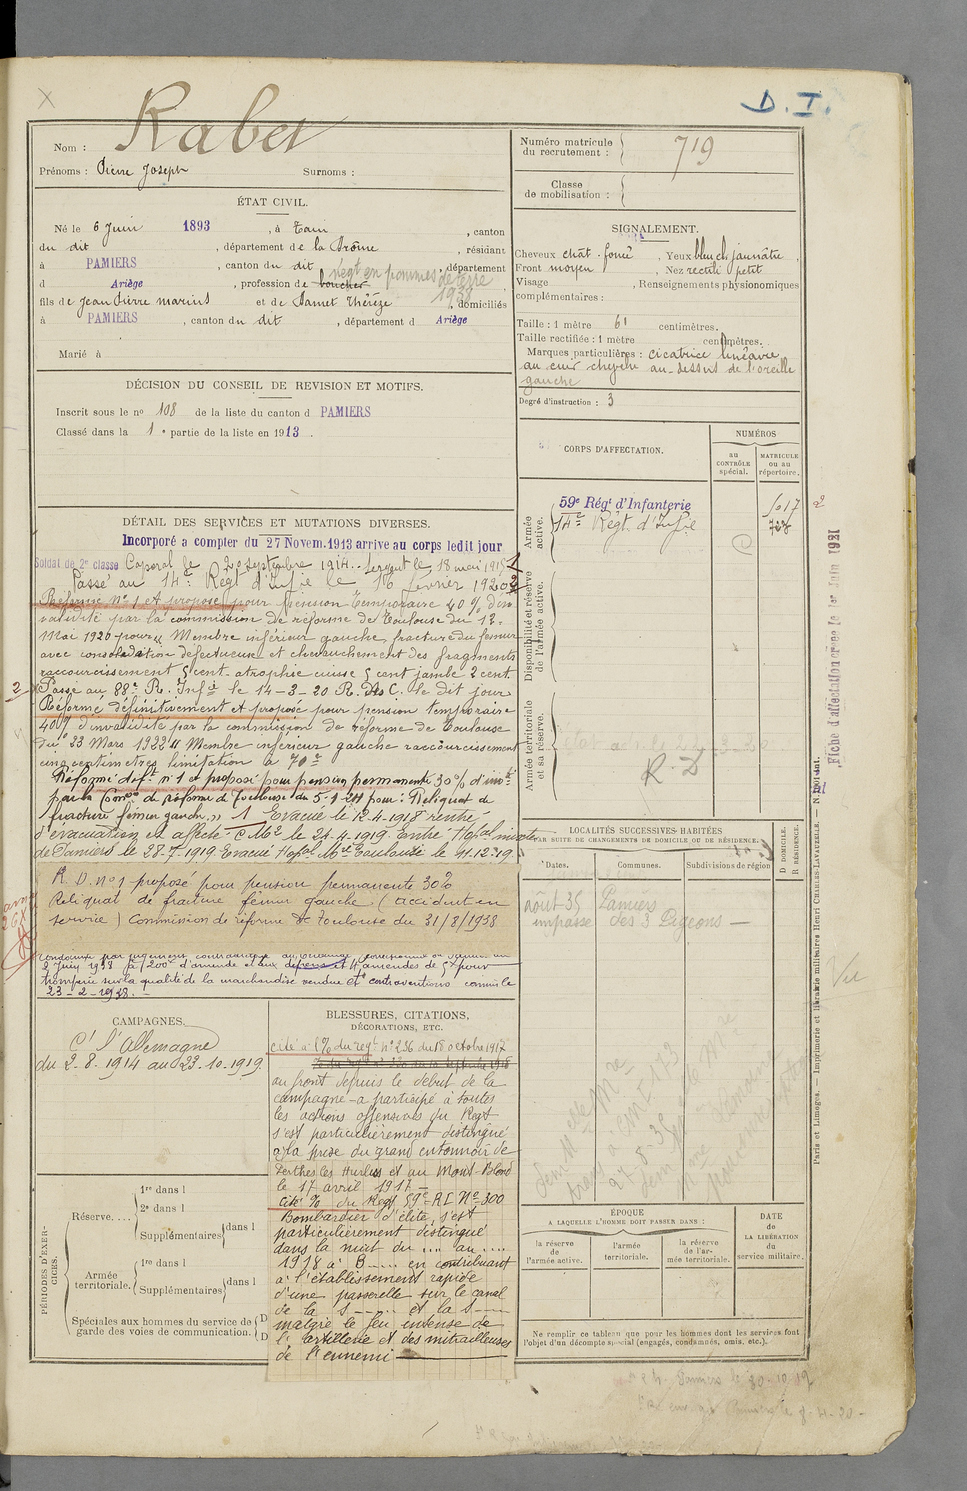 D. I.
Nom : Rabet
Prénoms : Pierre Joseph Surnoms :
ÉTAT CIVIL.
Né le 6 Juin 1893, à Tain, canton
du dit, département de la Drôme, résidant
à PAMIERS, canton du dit, département
négt en pommes de terre
1938
d Ariège, profession de boucher
fils de Jean Pierre marius et de Damet Thérèze, domiciliés
à PAMIERS, canton du dit, département d Ariège
Marié à
DÉCISION DU CONSEIL DE REVISION ET MOTIFS.
Inscrit sous le nº 108 de la liste du canton d PAMIERS
Classé dans la 1e partie de la liste en 1913.
DÉTAIL DES SERVICES ET MUTATIONS DIVERSES.
Incorporé a compter du 27 Novem. 1913 arrive au corps ledit jour
Soldat de 2e classe Caporal le 20 septembre 1914. Sergent le 18 mai 1915
Passé au 14e Régt d'Infie le 16 février 1920
Réformé No 1 et proposé pour pension temporaire 40 % d'in
validité par la commission de réforme de Toulouse du 12
Mai 1920 pour "Membre inférieur gauche fracture du femur
avec consolidation défectueuse et chevauchement des fragments
raccourcissement 5 cent. atrophie cuisse 5 cent jambe 2 cent.
Passé au 88e R. Infie le 14-3-20 R. des C. le dit jour
Réformé définitivement et proposé pour pension temporaire
40% d'invalidité par la commission de réforme de Toulouse
du 23 Mars 1922 "Membre inférieur gauche raccourcissement
cinq centimètres limitation à 70º
Réformé déft nº 1 et proposé pour pension permanente 30% d'invté
par la Comon de réforme de Toulouse du 5-1-24 pour : Reliquat de
fracture fémur gauche." 1 Evacué le 12-4-1918 rentré
d'évacuation et affecté CM2 le 21-4-1919. Entré Hopal mixte
de Pamiers le 28-7-1919. Evacué Hopal Toulouse le 11.12.19.
R. D. nº 1 proposé pour pension permanente 30%
Reliquat de fracture fémur gauche (accident en
service) Commission de réforme de Toulouse du 31/8/1938
2 Juin 1938 à 200f d'amende et aux dépens et 4 amendes de 5f pour
tromperie sur la qualité de la marchandise vendue et contraventions commis le
23-2-1938.
CAMPAGNES.
Ct l'Allemagne
du 2-8-1914 au 23-10-1919.
PÉRIODES D'EXERCICES.
Réserve....
1re dans l
2e dans l
Supplémentaires dans l
Armée territoriale.
1re dans l
Supplémentaires dans l
Spéciales aux hommes du service de garde des voies de communication.
D
D
BLESSURES, CITATIONS,
DÉCORATIONS, ETC.
Cité à l'% du régt nº 256 du 18 octobre 1917
au front depuis le début de la
campagne - a participé à toutes
les actions offensives du Regt
s'est particulièrement distingué
à la prise du grand entonnoir de
Perthes les Hurlus et au Mont-Blond
le 17 avril 1917 -
Cité % du Regt 59e RI Nº 300
Bombardier d'élite, s'est
particulièrement distingué
dans la nuit du .... au ....
1918 à B..... en contribuant
à l'établissement rapide
d'une passerelle sur le canal
de la S----- et la S----
malgré le feu intense de
l'artillerie et des mitrailleuses
de l'ennemi
Numéro matricule du recrutement : 719
Classe de mobilisation :
SIGNALEMENT.
Cheveux chât. foncé, Yeux bleu ch jaunâtre,
Front moyen, Nez rectili petit
Visage, Renseignements physionomiques
complémentaires :
Taille : 1 mètre 61 centimètres.
Taille rectifiée : 1 mètre centimètres.
Marques particulières : cicatrice linéaire
au cuir chevelu au-dessus de l'oreille
gauche
Degré d'instruction : 3
CORPS D'AFFECTATION.
NUMÉROS
au CONTRÔLE spécial.
MATRICULE ou au répertoire.
Armée active.
59e Régt d'Infanterie
14e Régt d'Infie
Disponibilité et réserve de l'armée active.
Armée territoriale et sa réserve.
R D
Fiche d'affectation créée le 1er Juin 1921
LOCALITÉS SUCCESSIVES HABITÉES
PAR SUITE DE CHANGEMENTS DE DOMICILE OU DE RÉSIDENCE.
D. DOMICILE.
R. RÉSIDENCE.
Dates.
Communes.
Subdivisions de région
août 35 Pamiers
impasse des 3 Pigeons
Vu
ÉPOQUE
A LAQUELLE L'HOMME DOIT PASSER DANS :
la réserve de l'armée active.
l'armée territoriale.
la réserve de l'armée territoriale.
DATE de LA LIBÉRATION du service militaire.
Ne remplir ce tableau que pour les hommes dont les services font
l'objet d'un décompte spécial (engagés, condamnés, omis, etc.).
Paris et Limoges. — Imprimerie et librairie militaires Henri CHARLES-LAVAUZELLE.